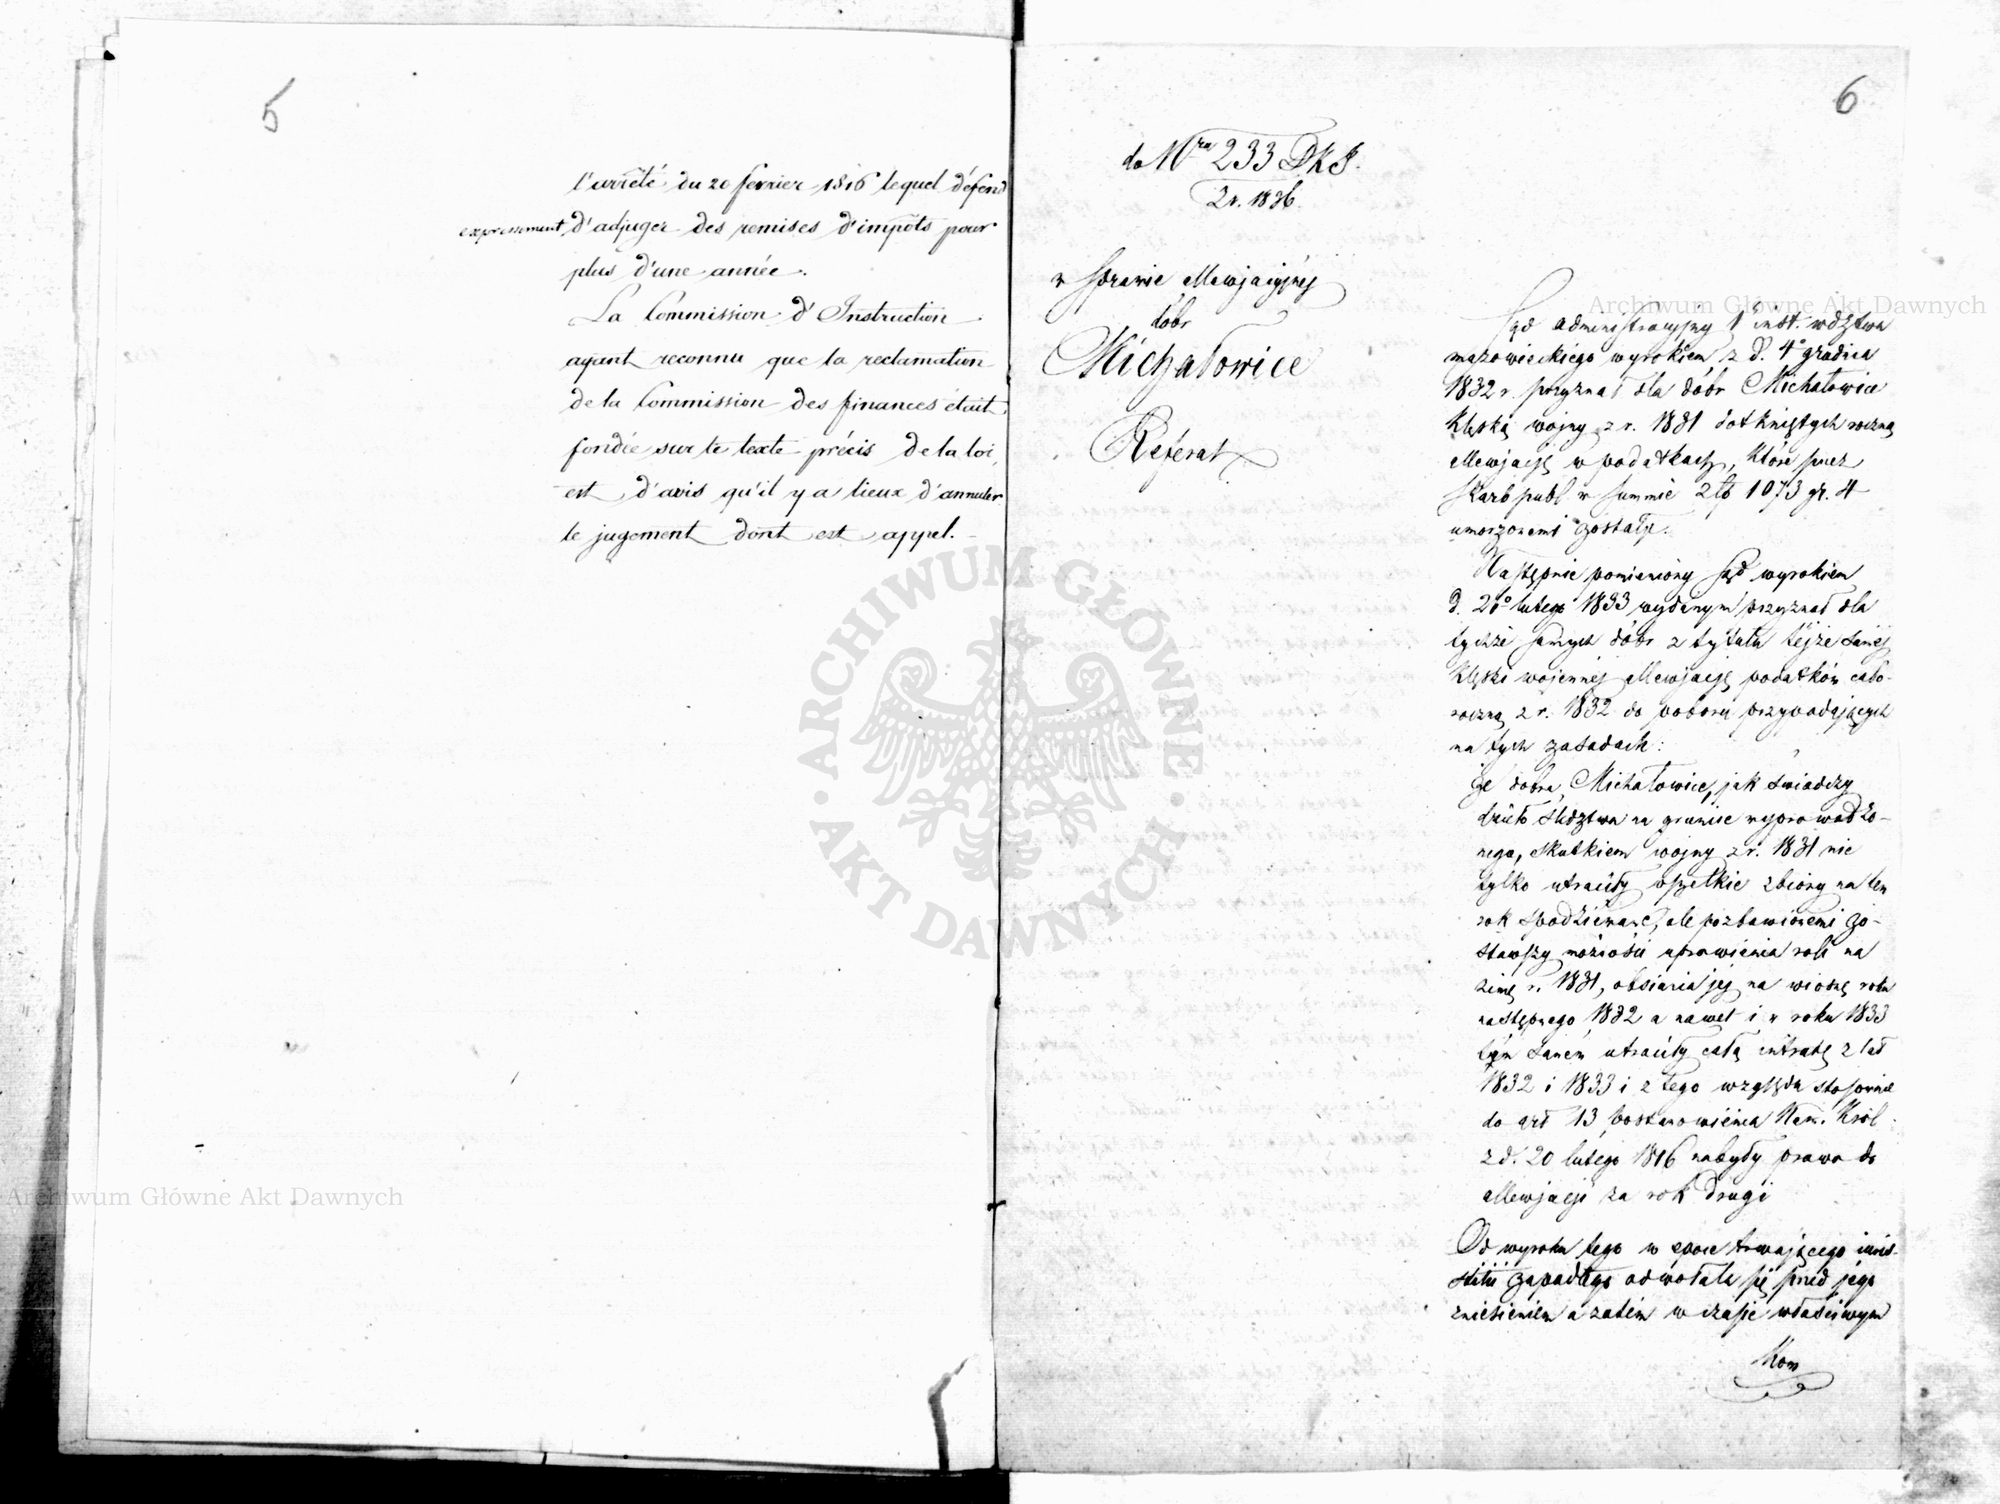 5
l'arrêté du 20 fevrier 1816 lequel défend
expressement d'adjuger des remises d'impôts pour
plus d'une année.
La Commission d'Instruction
ayant reconnu que la reclamation
de la Commission des finances était
fondée sur le texte précis de la loi,
est d'avis qu'il y a lieux d'annuler
le jugement dont est appel.
6
do Nru 233 DKS.
z r. 1836.
w sprawie allewjacyjnej
dobr
Michałowice
Referat
Sąd administracyjny 1 inst. wdztwa
mazowieckiego wyrokiem z d. 4o grudnia
1832 r. przyznał dla dóbr Michałowice
klęską wojny z r. 1831 dotkniętych roczną
allewjacyę w podatkach, które przez
Skarb publ. w summie złp 1073 gr. 4
umorzonemi zostały.
Następnie pomieniony sąd wyrokiem
d. lutego 1833 wydanym przyznał dla
tychże samych dóbr z tytułu tejże samej
klęski wojennej allewjacyę podatków cało-
roczną z r. 1832 do poboru przypadających
na tych zasadach:
że dobra Michałowice, jak świadczy
dzieło śledztwa na gruncie wyprowadzo-
nego, skutkiem wojny z r. 1831 nie
tylko utraciły wszelkie zbiory na ten
rok spodziewane, ale pozbawionemi zo-
stawszy możności uprawienia roli na
zimę r. 1831, obsiania jej na wiosnę roku
następnego 1832 a nawet i w roku 1833
tym samem utraciły całą intratę z lat
1832 i 1833 i z tego względu stosownie
do art 13 postanowienia Nam. Król.
z d. 20 lutego 1816 nabyły prawo do
allewjacji za rok drugi
Od wyroku tego w epoce trwającego iusti-
stitii zapadłego odwołała się przed jego
zniesieniem a zatem w czasie właściwym
Kom
Archiwum Główne Akt Dawnych
Archiwum Główne Akt Dawnych
ARCHIWUM GŁÓWNE AKT DAWNYCH